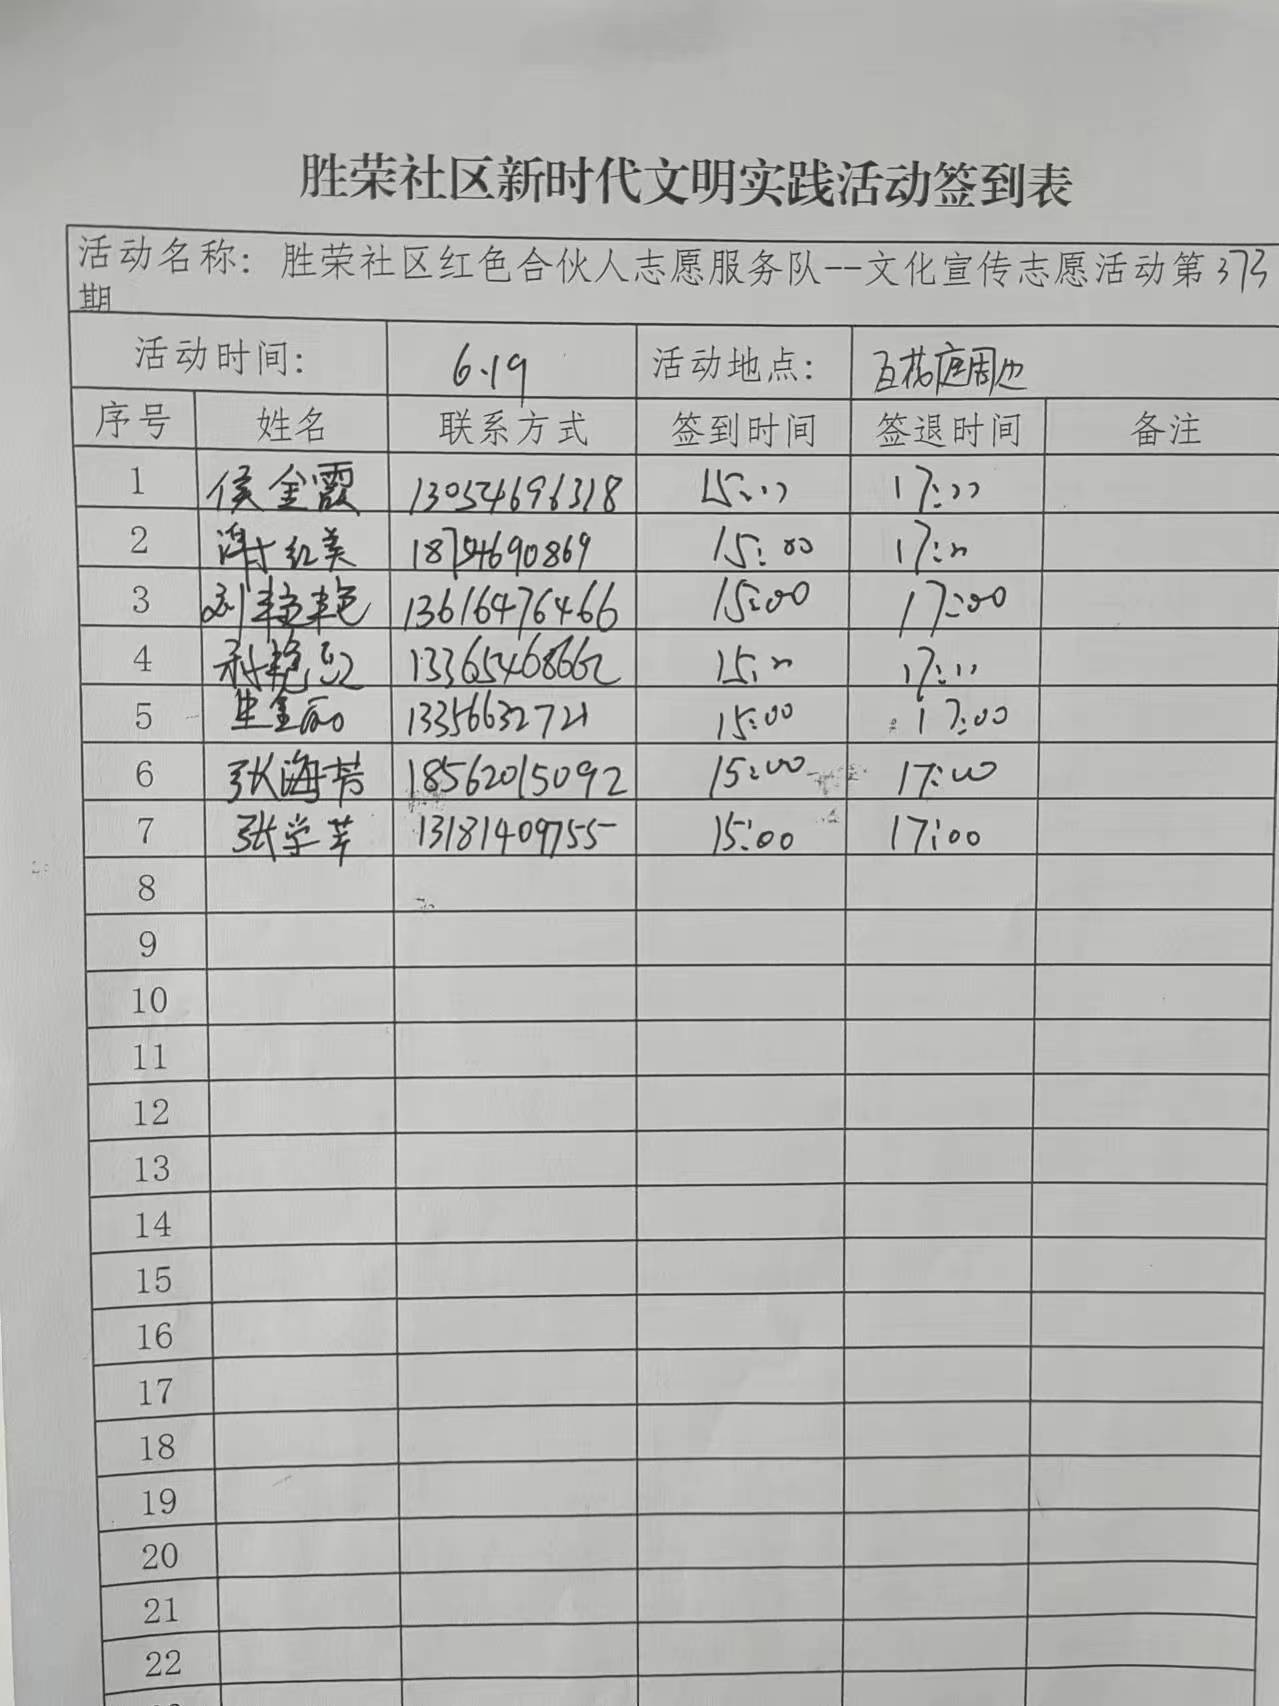 胜荣社区新时代文明实践活动签到表
活动名称：胜荣社区红色合伙人志愿服务队--文化宣传志愿活动第373
期
活动时间： 6.19 活动地点： 周边
序号 姓名 联系方式 签到时间 签退时间 备注
1 侯金霞 13054696318 15:00 17:00
2 谢红美 18754690869 15:00 17:00
3 刘艳艳 13616476466 15:00 17:00
4 13365468662 15:00 17:00
5 13356632721 15:00 17:00
6 张海芳 18562015092 15:00 17:00
7 张学苹 13181409755 15:00 17:00
8
9
10
11
12
13
14
15
16
17
18
19
20
21
22